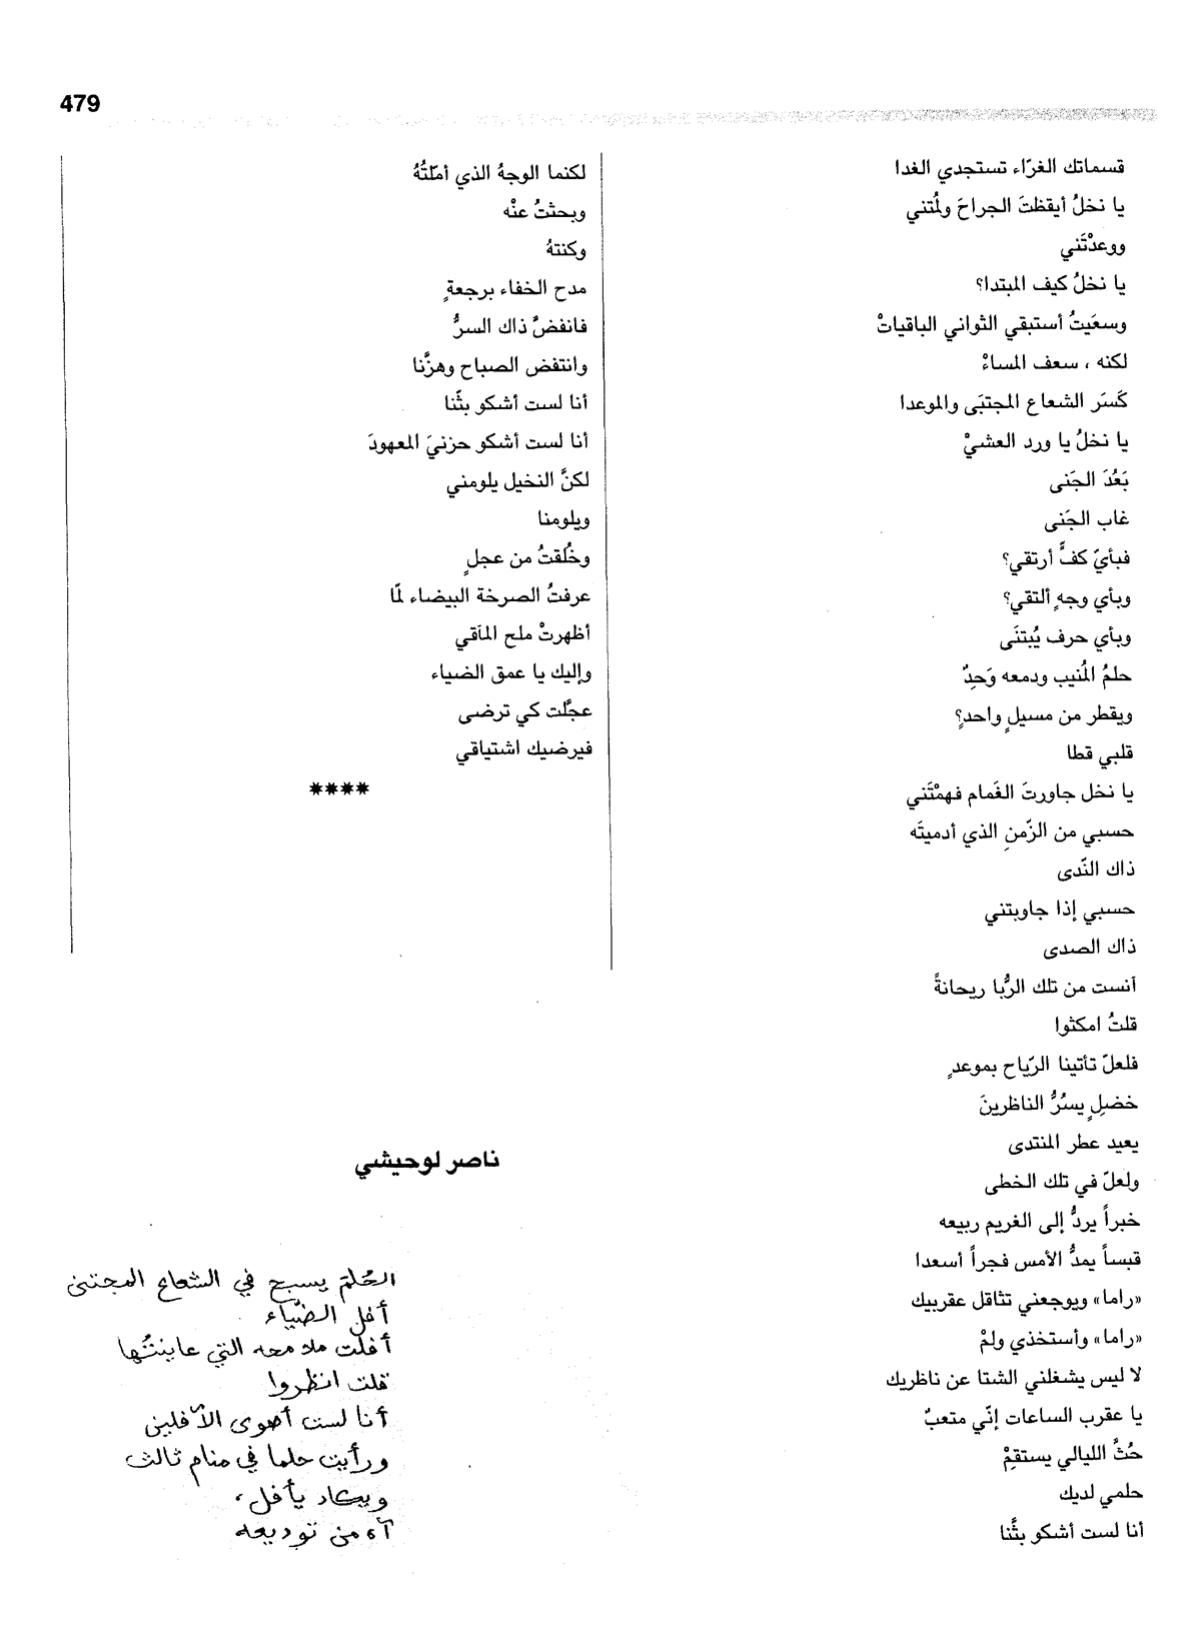 479
قسماتك الغرّاء تستجدي الغدا
يا نخلُ أيقظتَ الجراحَ ولمُتني
ووعدْتَني
يا نخلُ كيف المبتدا؟
وسعَيتُ أستبقي الثواني الباقياتْ
لكنه ، سعف المساءْ
كَسَر الشعاع المجتبَى والموعدا
يا نخلُ يا ورد العشيْ
بَعُدَ الجَنى
غاب الجَنى
فبأيّ كفًّ أرتقي؟
وبأي وجهٍ ألتقي؟
وبأي حرف يُبتنَى
حلمُ المُنيب ودمعه وَحِدٌ
ويقطر من مسيلٍ واحدٍ؟
قلبي قطا
يا نخل جاورتَ الغَمام فهمْتَني
حسبي من الزّمنِ الذي أدميتَه
ذاك النّدى
حسبي إذا جاوبتني
ذاك الصدى
آنست من تلك الرُّبا ريحانةً
قلتُ امكثوا
فلعلّ تأتينا الرّياح بموعدٍ
خضلٍ يسُرُّ الناظرينَ
يعيد عطر المنتدى
ولعلّ في تلك الخطى
خبراً يردُّ إلى الغريم ربيعه
قبساً يمدُّ الأمس فجراً أسعدا
«راما» ويوجعني تثاقل عقربيك
«راما» وأستخذي ولمْ
لا ليس يشغلني الشتا عن ناظريك
يا عقرب الساعات إنّي متعبٌ
حُثَّ الليالي يستقمْ
حلمي لديك
أنا لست أشكو بثَّنا
لكنما الوجهُ الذي أمّلتُهُ
وبحثتُ عنْه
وكنتهُ
مدح الخفاء برجعةٍ
فانفضَّ ذاك السرُّ
وانتفض الصباح وهزَّنا
أنا لست أشكو بثّنا
أنا لست أشكو حزنيَ المعهودَ
لكنَّ النخيل يلومني
ويلومنا
وخُلقتُ من عجلٍ
عرفتُ الصرخة البيضاء لمّا
أظهرتْ ملح المآقي
وإليك يا عمق الضياء
عجَّلت كي ترضى
فيرضيك اشتياقي
****
ناصر لوحيشي
الحُلمُ يسبح في الشعاع المجتبى
أفل الضّياء
أفلت ملامحه التي عاينتُها
قلت انظروا
أنا لست أهوى الآفلين
ورأيت حلما في منام ثالث
ويكاد يأفل،
آه من توديعه